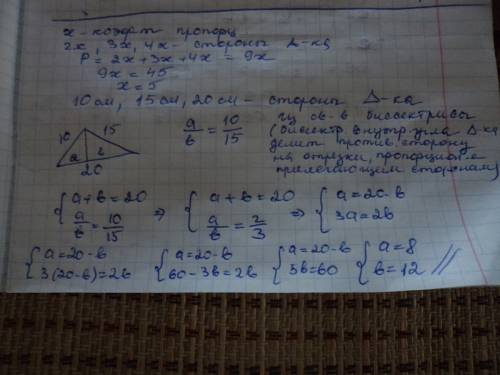 x - коэфт пропорц
2x, 3x, 4x - стороны Δ-ка
P = 2x + 3x + 4x = 9x
9x = 45
x = 5
10 см, 15 см, 20 см - стороны Δ-ка
10 15
a b
20
a/b = 10/15
из св-в биссектрисы
(биссектр. внутр. угла Δ-ка
делит против. сторону
на отрезки, пропорцион-е
прилегающим сторонам)
{a+b=20 => {a+b=20 => {a=20-b
a/b = 10/15 a/b = 2/3 3a=2b
{a=20-b {a=20-b {a=20-b {a=8
3(20-b)=2b 60-3b=2b 5b=60 b=12 //